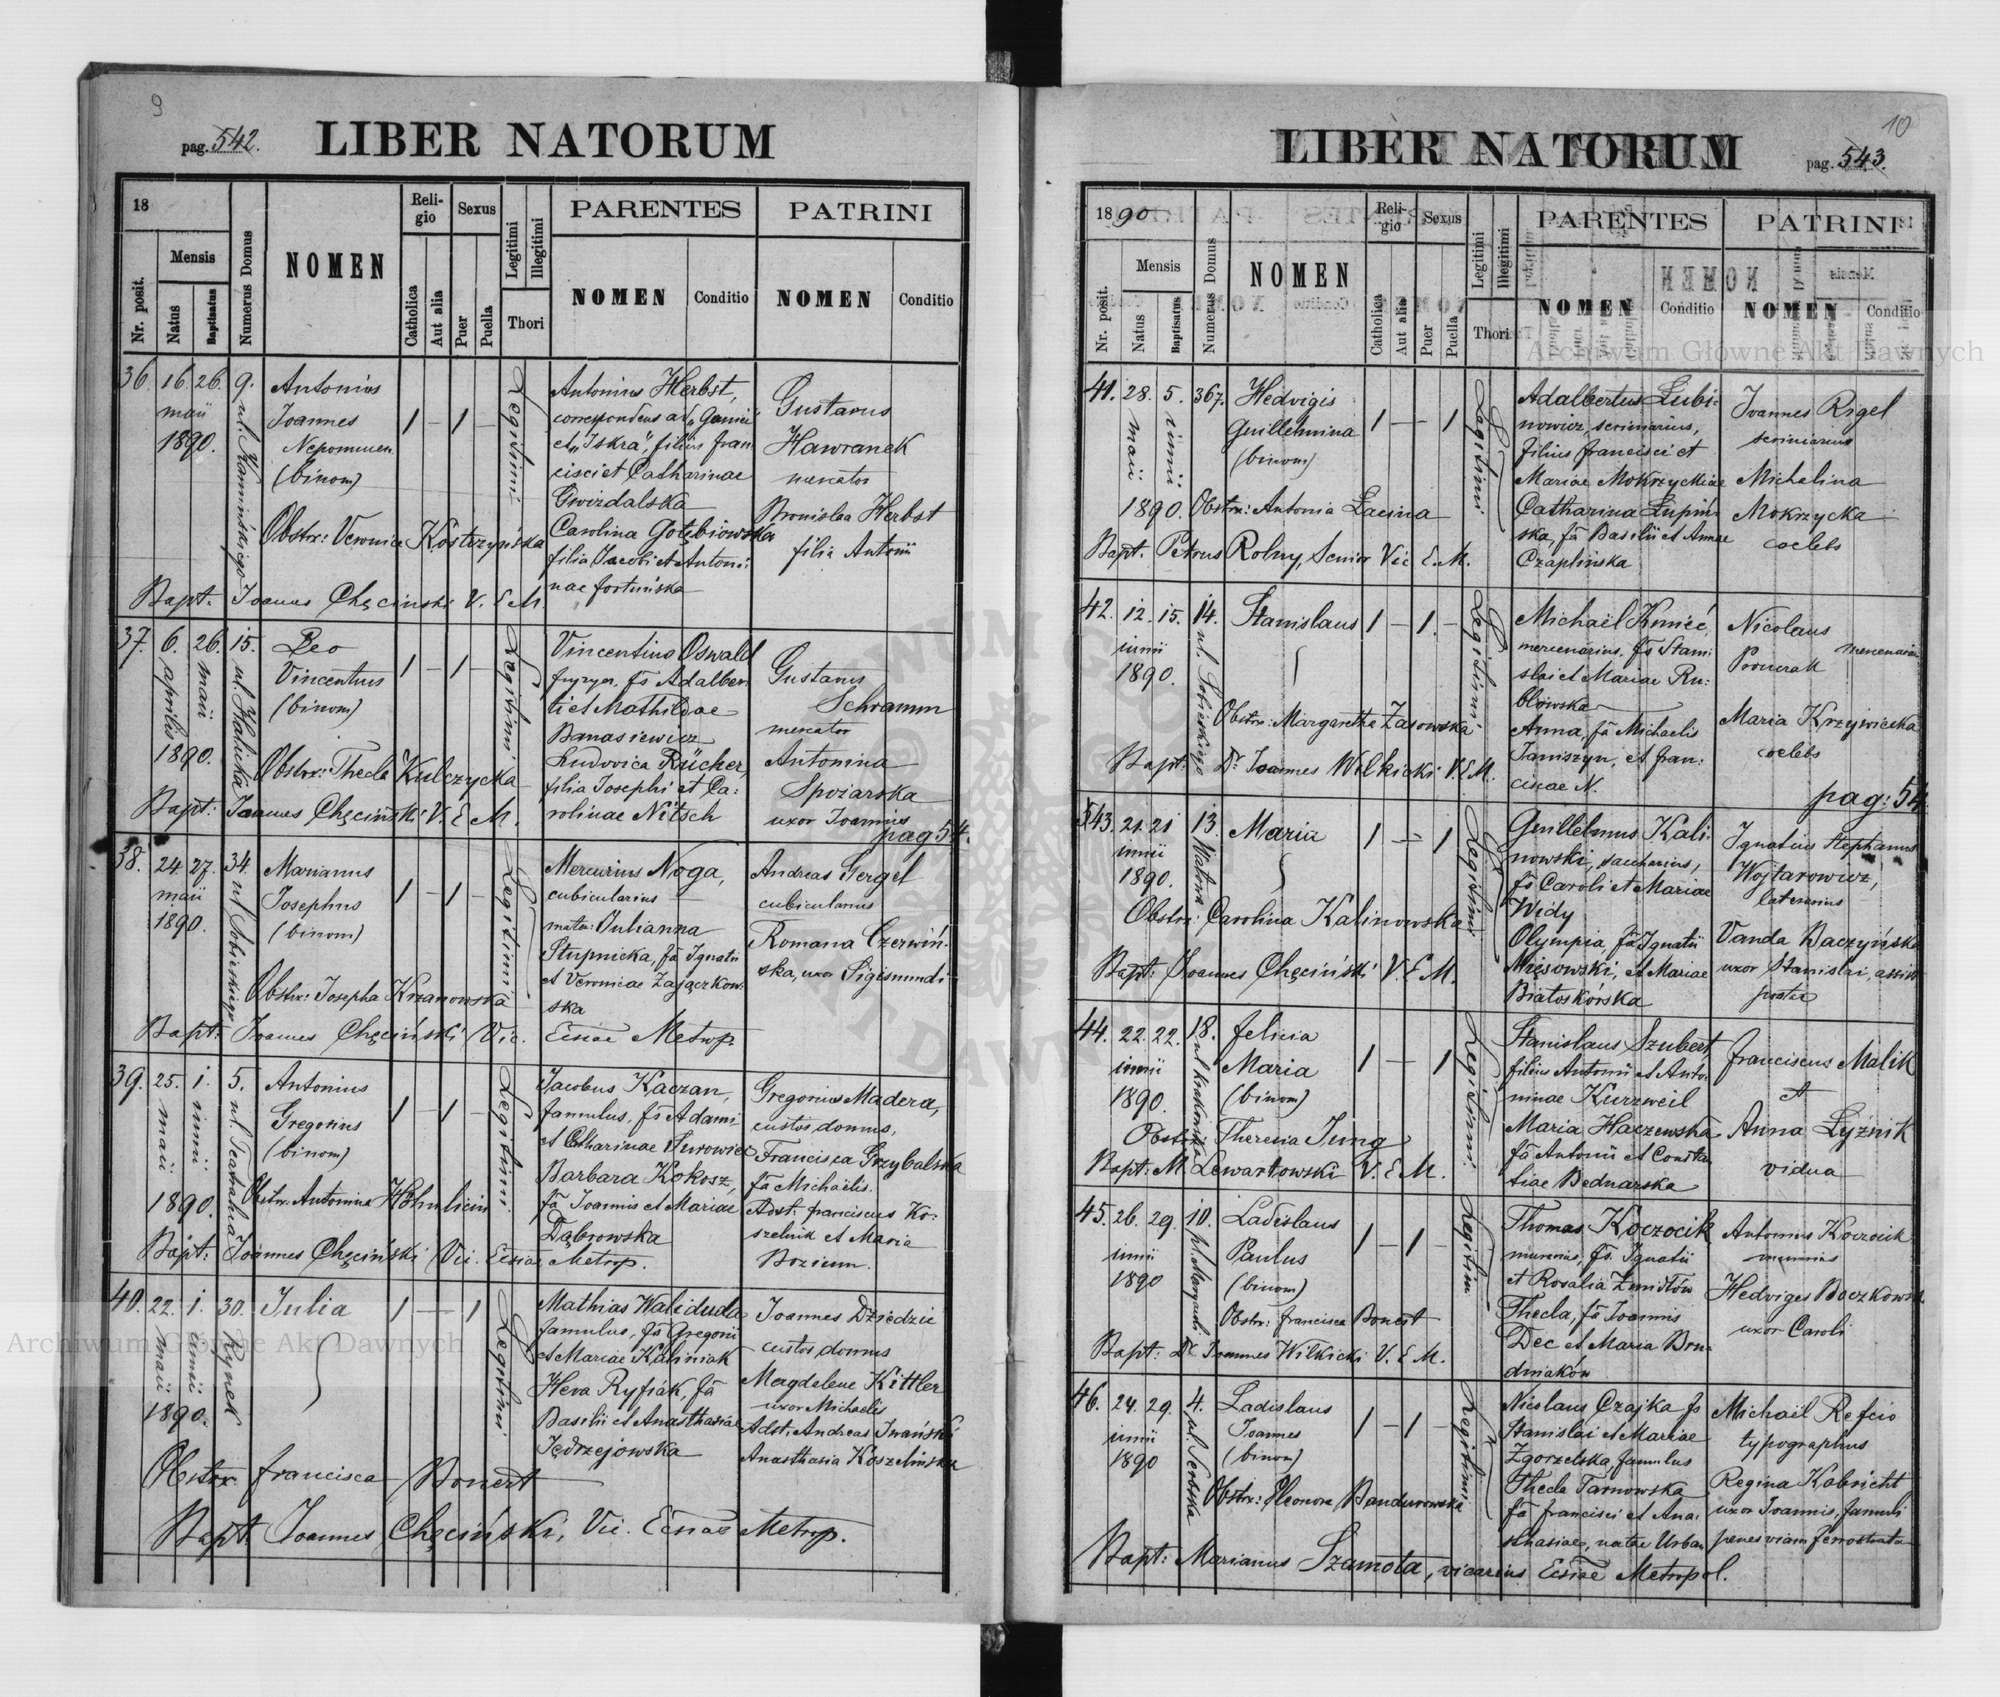 9
pag. 542.
LIBER NATORUM
18
Nr. posit.
Mensis
Natus
Baptisatus
Numerus Domus
NOMEN
Religio
Catholica
Aut alia
Sexus
Puer
Puella
Legitimi
Illegitimi
Thori
PARENTES
NOMEN
Conditio
PATRINI
NOMEN
Conditio
36. 16. 26. 9.
maii
1890.
ul. Kamińskiego
Antonius
Joannes
Nepomucen
(binom)
1 – 1 –
Legitimi
Antonius Herbst,
correspondens ad
et "Iskra", filius Fran
cisci et Catharinae
Gwizdalska
Carolina Gołębiowska
filia Jacobi et Antoni:
nae Fortuńska
Gustavus
Hawranek
mercator
Bronislaa Herbst
filia Antonii
Obstrx: Veronica Kostrzyńska
Bapt. Joannes Chęciński V. E. M.
37. 6. 26. 15.
aprilis
maii
1890.
ul. Halicka
Leo
Vincentius
(binom)
1 – 1 –
Legitimi
Vincentius Oswald
fryzyer, fs Adalber
ti et Mathildae
Banasiewicz
Ludovica Rücher,
filia Josephi et Ca:
rolinae Nitsch
Gustavus
Schramm
mercator
Antonina
Spoiarska
uxor Joannis
pag 54.
Obstrx: Thecla Kulczycka
Bapt: Joannes Chęciński V. E. M.
38. 24. 27. 34.
maii
1890.
ul. Sobieskiego
Marianus
Josephus
(binom)
1 – 1 –
Legitimi
Mercurius Noga,
cubicularius
mater: Julianna
Stupnicka, fa Ignatii
et Veronicae Zajączkow
ska
Andreas Gergel
cubicularius
Romana Czerwiń
ska, uxor Sigismundi
Obstrx: Josepha Krzanowska
Bapt: Joannes Chęciński Vic. Ecsiae Metrop.
39. 25. 1. 5.
maii
iunii
1890.
ul. Teatralna
Antonius
Gregorius
(binom)
1 – 1 –
Legitimi
Jacobus Kaczan,
famulus, fs Adami
et Catharinae Surowiec
Barbara Kokosz,
fa Joannis et Mariae
Dąbrowska
Gregorius Madera,
custos domus,
Francisca Grzybalska
fa Michaelis.
Adst: Franciscus Ko:
szelnik et Maria
Bozium.
Obstrx. Antonina Höhnlicin
Bapt: Joannes Chęciński Vic. Ecsiae Metrop.
40. 22. 1. 30.
maii
iunii
1890.
Rynek
Julia
1 – 1
Legitimi
Mathias Waliduda
famulus, fs Gregorii
et Mariae Kaliniak
Heva Ryfiak, fa
Basilii et Anasthasiae
Jędrzejowska
Joannes Dziedzic
custos domus
Magdalene Kittler
uxor Michaelis
Adst: Andreas Iwański
Anasthasia Koszelińska
Obstrx. Francisca Bonert
Bapt: Joannes Chęciński, Vic. Ecsiae Metrop.
10
LIBER NATORUM
pag. 543.
1890
Nr. posit.
Mensis
Natus
Baptisatus
Numerus Domus
NOMEN
Religio
Catholica
Aut alia
Sexus
Puer
Puella
Legitimi
Illegitimi
Thori
PARENTES
NOMEN
Conditio
PATRINI
NOMEN
Conditio
41. 28. 5. 367.
maii
iunii
1890.
Hedvigis
Guillelmina
(binom)
1 – – 1
Legitimi
Adalbertus Łubi:
nowicz, scriniarius,
filius Francisci et
Mariae Mokrzyckiae
Catharina Łupiń
ska, fa Basilii et Annae
Czaplińska
Joannes Rigel
scriniarius
Michalina
Mokrzycka
coelebs
Obstrx: Antonia Łacina
Bapt. Petrus Rolny, Senior Vic E. M.
42. 12. 15. 14.
iunii
1890.
ul. Sobieskiego
Stanislaus
1 – 1 –
Legitimi
Michaël Kmieć,
mercenarius, fs Stani
slai et Mariae Ru:
blowska
Anna, fa Michaelis
Janiszyn, et Fran:
ciscae N.
Nicolaus
mercenarius
Maria Krzywiecka
coelebs
pag: 54
Obstrx: Margaretha Zasowska
Bapt: Dr Joannes Wilkicki V. E. M.
543. 21. 21 13.
iunii
1890.
Watowa
Maria
1 – 1
Legitimi
Guillelmus Kali:
nowski, saccharius,
fs Caroli et Mariae
Widy
Olympia, fa Ignatii
Mięsowski, et Mariae
Białoskórska
Ignatius Stephanus
Wojtarowicz,
laterarius
Vanda Baczyńska
uxor Stanislai, assist
postae
Obstrx: Carolina Kalinowska
Bapt: Joannes Chęciński V. E. M.
44. 22. 22. 18.
iunii
1890.
ul. Krakowska
Felicia
Maria
(binom)
1 – 1
Legitimi
Stanislaus Szubert
filius Antonii et Anto:
ninae Kurzweil
Maria Haczewska
fa Antonii et Constan
tiae Bednarska
Franciscus Malik
et
Anna Łyżnik
vidua
Obstrx: Theresia Jung
Bapt: M. Lewartowski V. E. M.
45. 26. 29. 10.
iunii
1890
pl. Maryacki
Ladislaus
Paulus
(binom)
1 – 1 –
Legitimi
Thomas Koczocik
murarius, fs Ignatii
et Rosalia Zemitów
Thecla, fa Joannis
Dec et Maria Bru
dniaków
Antonius Koczocik
murarius
Hedviges Baczkowska
uxor Caroli
Obstrx: Francisca Bonert
Bapt: Dr Joannes Wilkicki V. E. M.
46. 24. 29. 4.
iunii
1890
ul. Serbska
Ladislaus
Joannes
(binom)
1 – 1 –
Legitimi
Nicolaus Czajka fs
Stanislai et Mariae
Zgorzelska, famulus
Thecla Tarnowska
fa Francisci et Ana:
sthasiae, natae Urban
Michaël Refcio
typographus
Regina Kobricht
uxor Joannis, famuli
penes viam ferrostrata
Obstrx: Eleonora Bandurowska
Bapt: Marianus Szamota, vicarius Ecsiae Metropol.
Archiwum Główne Akt Dawnych
Archiwum Główne Akt Dawnych